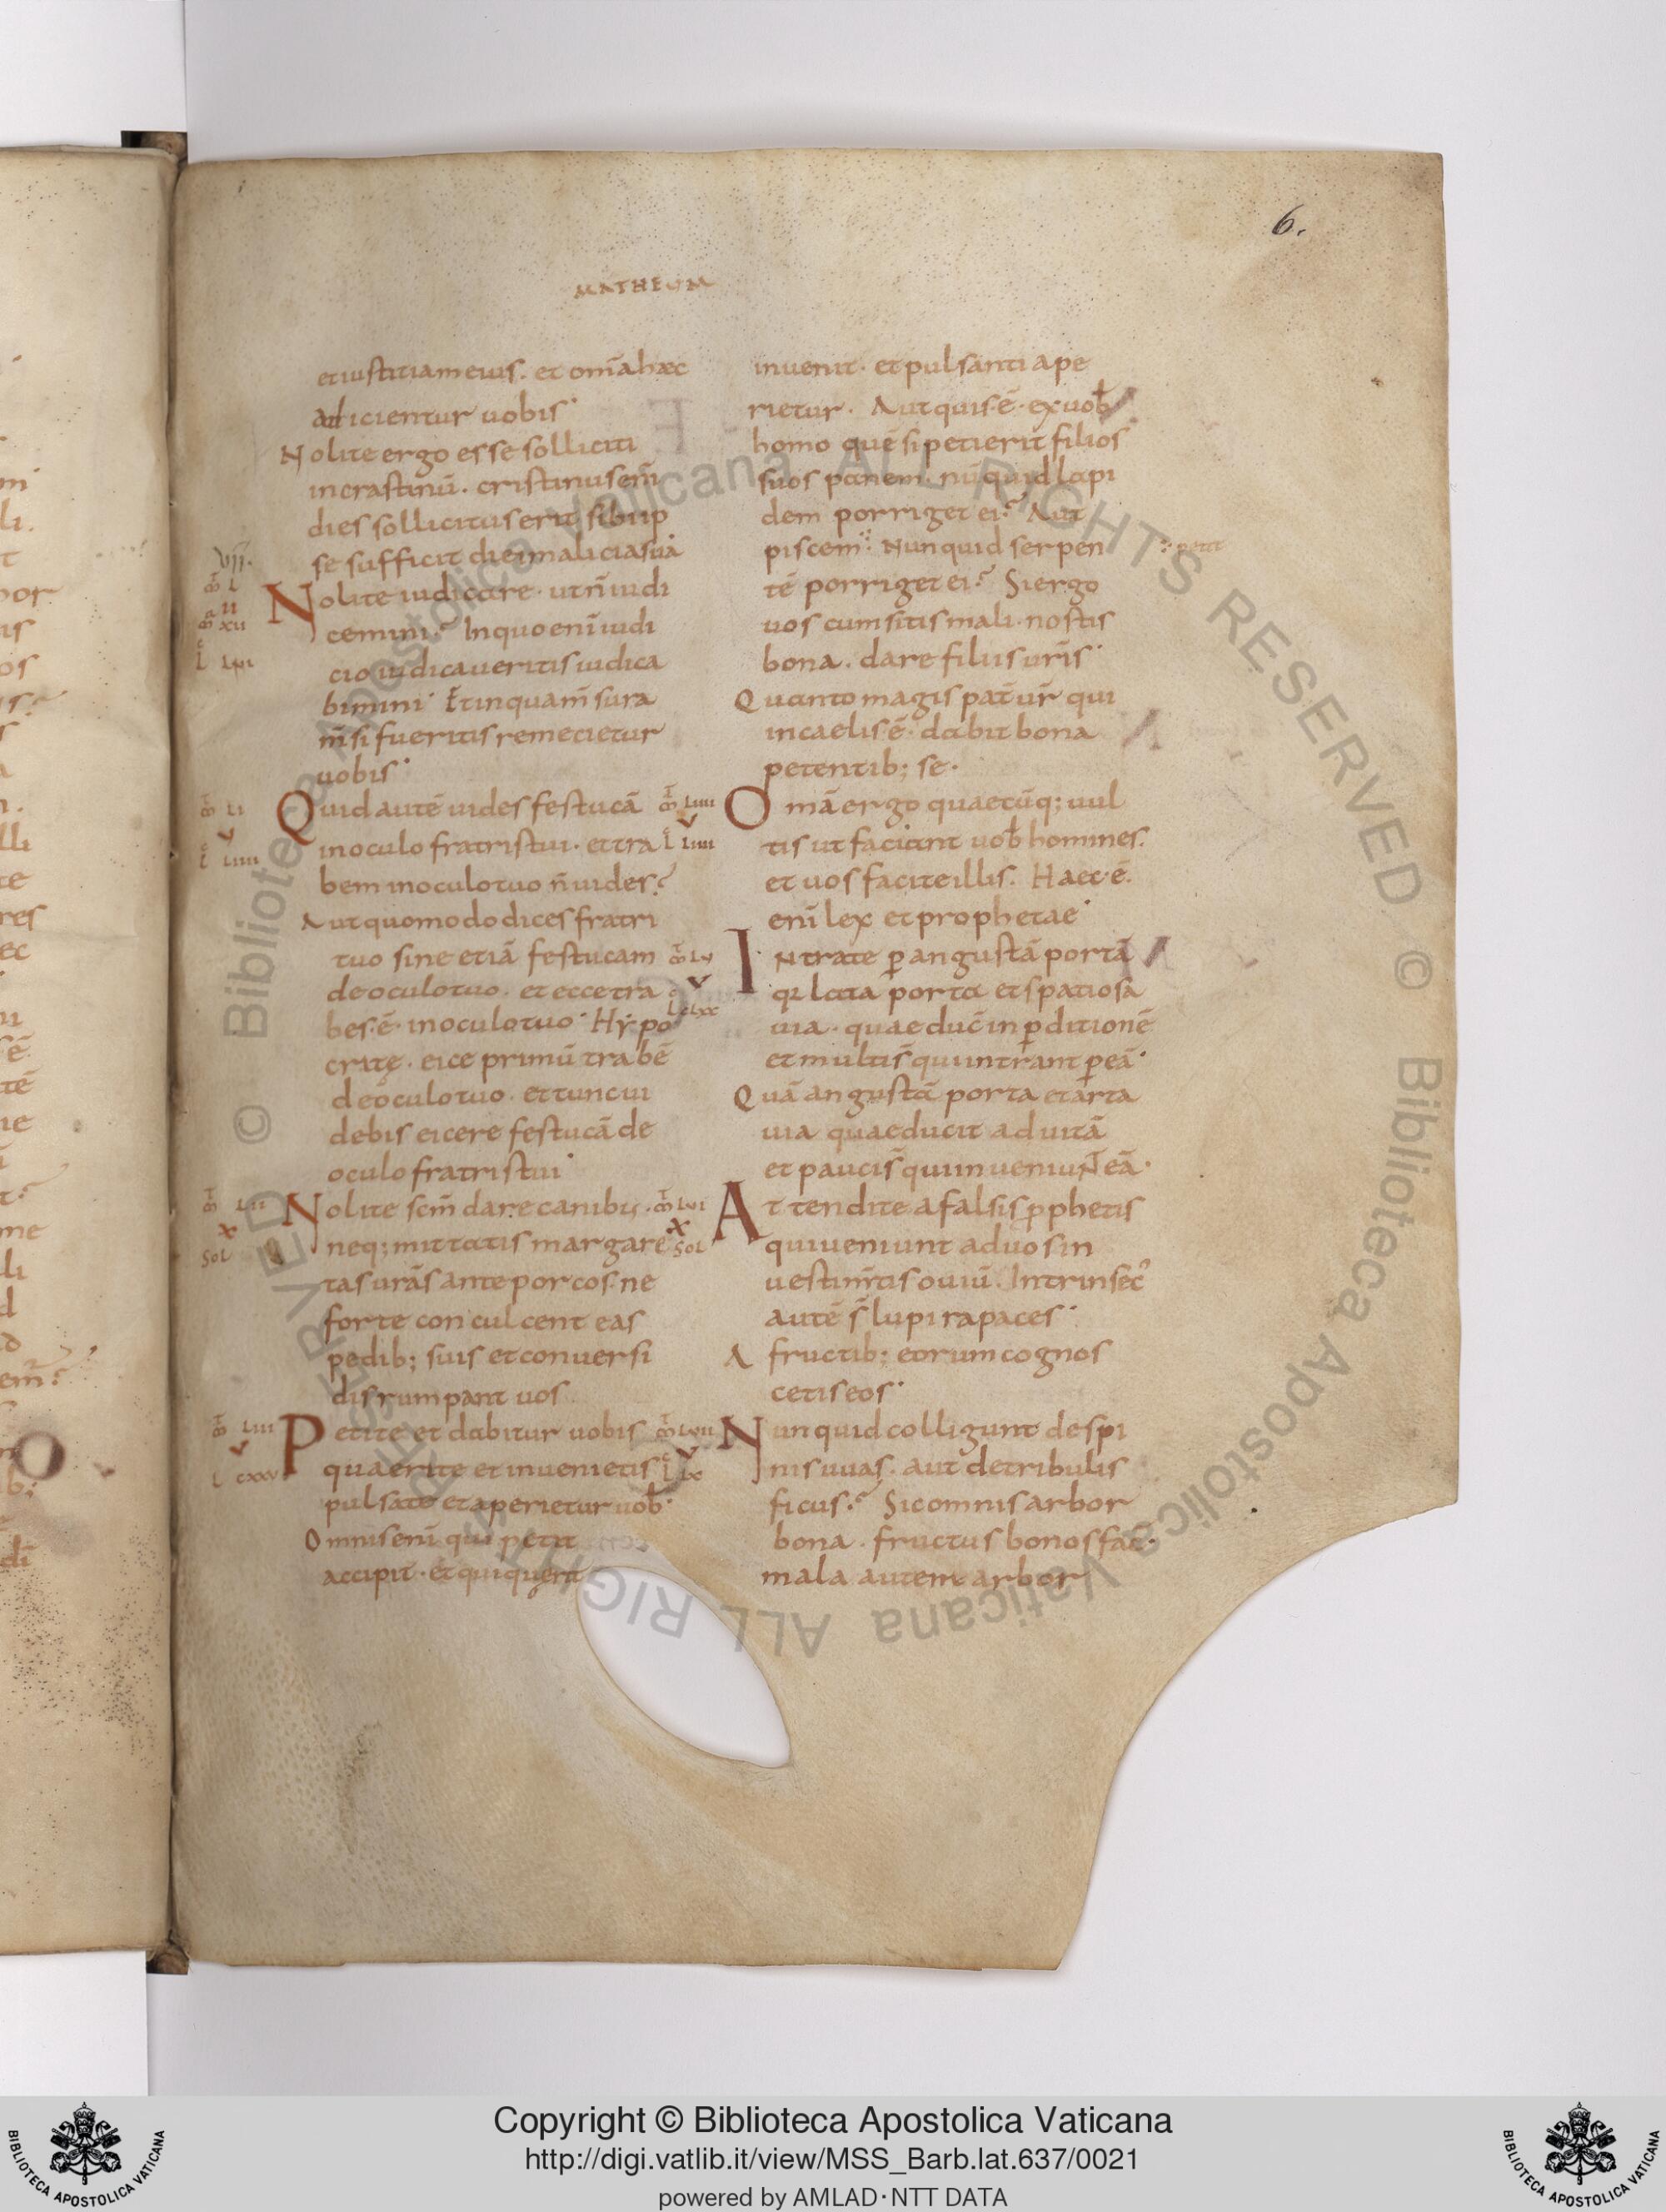 6.
MATHEUM
et iustitiam eius. et om̄a haec
adicientur uobis.
Nolite ergo esse solliciti
in crastinū. cristinus enī
dies sollicitus erit sibi ip
se sufficit diei malicia sua
VII.
Nolite iudicare. ut n̄ iudi
cemini. In quo enī iudi
cio iudicaueritis iudica
bimini. Et in qua m̄sura
m̄si fueritis remecietur
uobis.
Quid autē uides festucā
in oculo fratris tui. et tra
bem in oculo tuo n̄ uides?
Aut quomodo dices fratri
tuo sine etiā festucam
de oculo tuo. et ecce tra
bes.ē. in oculo tuo. Hypo
critę. eice primū trabē
de oculo tuo. et tunc ui
debis eicere festucā de
oculo fratris tui.
Nolite scm̄ dare canibus.
neq; mittatis margare
tas urās ante porcos. ne
forte conculcent eas
pedib; suis et conuersi
disrumpant uos
Petite et dabitur uobis
quaerite et inuenietis
pulsate et aperietur uob̄.
Omnis enī qui petit
accipit. et qui querit
inuenit. et pulsanti ape
rietur. Aut quis.ē. ex uob̄
homo quē si petierit filios
suos panem. nūquid lapi
dem porriget ei? Aut
piscem Nunquid serpen petit
tē porriget ei? Si ergo
uos cum sitis mali. nostis
bona. dare filiis urīs.
Quanto magis pat̄ ur̄ qui
in caelis.ē. dabit bona
petentib; se.
Omā ergo quaecūq; uul
tis ut faciant uob̄ homines.
et uos facite illis. Haec.ē.
enī lex et prophetae.
Intrate p̄ angustā portā
q̄ lata porta et spatiosa
uia. quae duc̄ in p̄ditionē
et multi s̄ qui intrant p̄ eā.
Quā angustā porta et arta
uia quae ducit ad uitā
et pauci s̄ qui inueniunt eā.
Attendite a falsis p̄phetis
qui ueniunt ad uos in
uestim̄tis ouiū. Intrinsec᾽
autē s̄ lupi rapaces.
A fructib; eorum cognos
cetis eos.
Nunquid colligunt de spi
nis uuas. aut de tribulis
ficus? Sic omnis arbor
bona. fructus bonos fac̄.
mala autem arbor
Copyright © Biblioteca Apostolica Vaticana
http://digi.vatlib.it/view/MSS_Barb.lat.637/0021
powered by AMLAD·NTT DATA
BIBLIOTECA APOSTOLICA VATICANA
BIBLIOTECA APOSTOLICA VATICANA